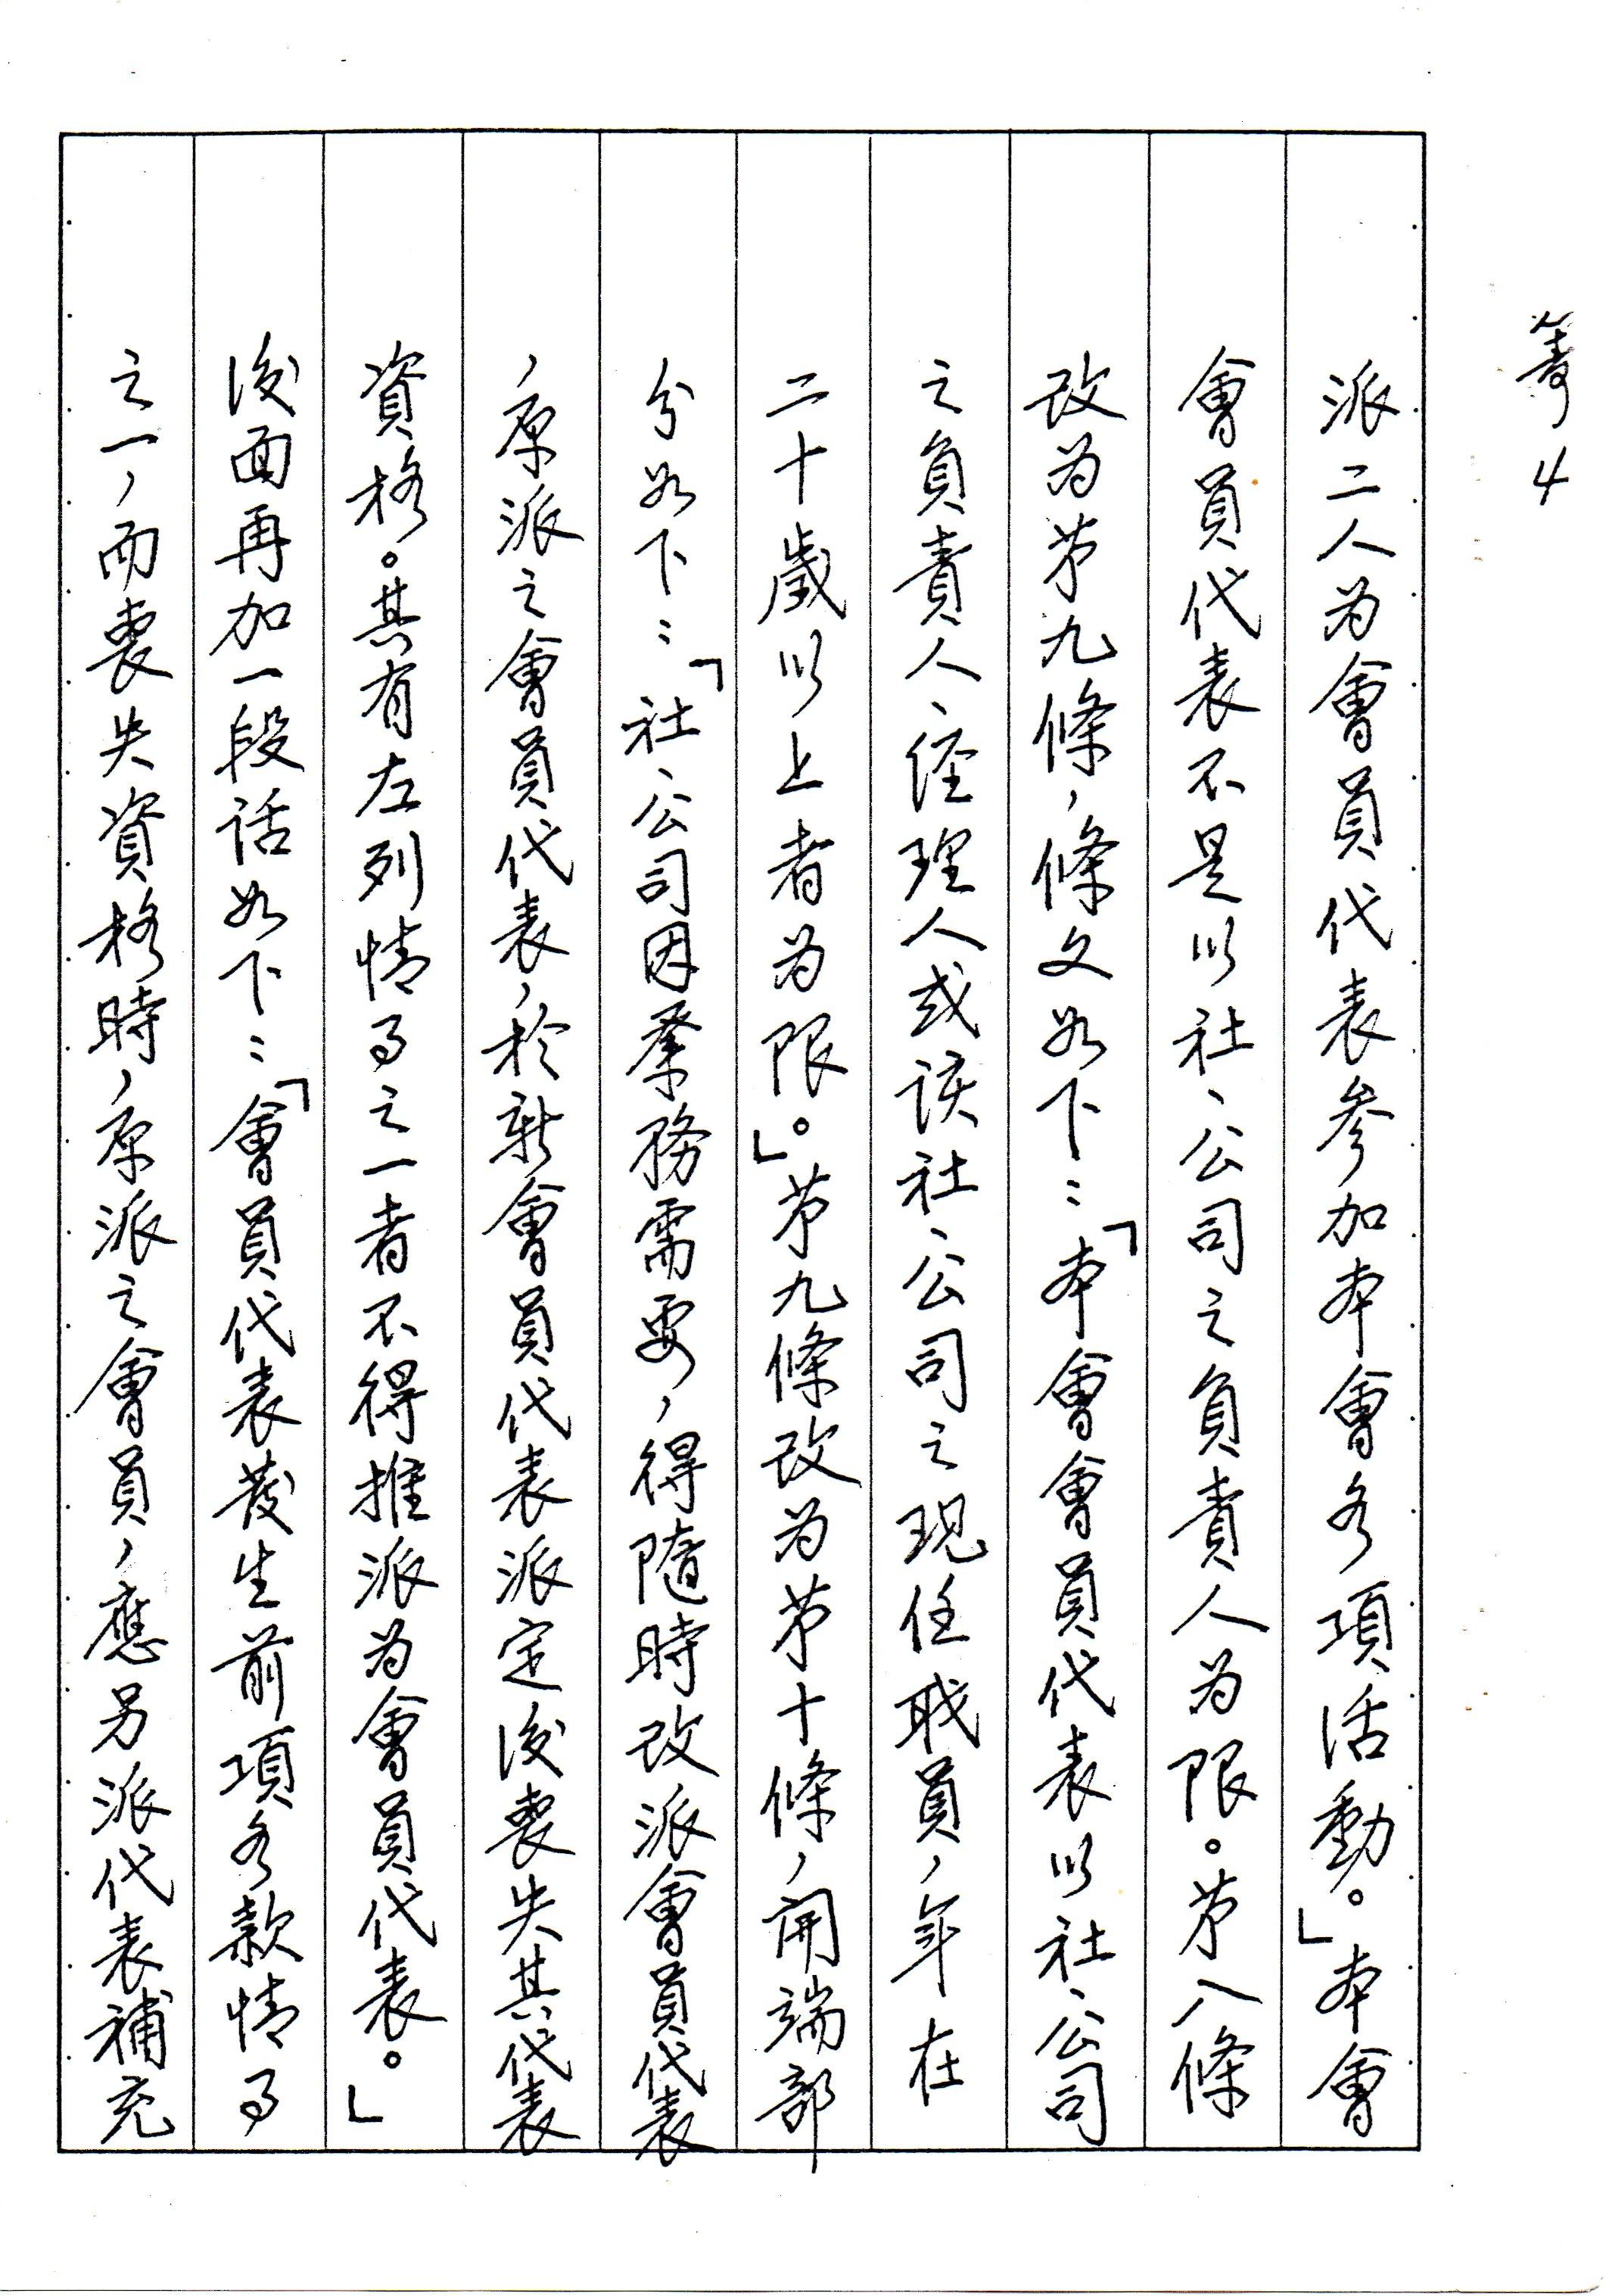 籌4
派二人为會員代表参加本會各項活動。」本會
會員代表不是以社、公司之負責人为限。苐八條
改为苐九條，條文如下：「本會會員代表以社、公司
之負責人、經理人或該社、公司之現任职員，年在
二十歲以上者为限。」苐九條改为苐十條，開端部
分如下：「社、公司因業務需要，得隨時改派會員代表
，原派之會員代表，於新會員代表派定後喪失其代表
資格。其有左列情事之一者不得推派为會員代表。」
後面再加一段話如下：「會員代表發生前項各款情事
之一，而喪失資格時，原派之會員，應另派代表補充